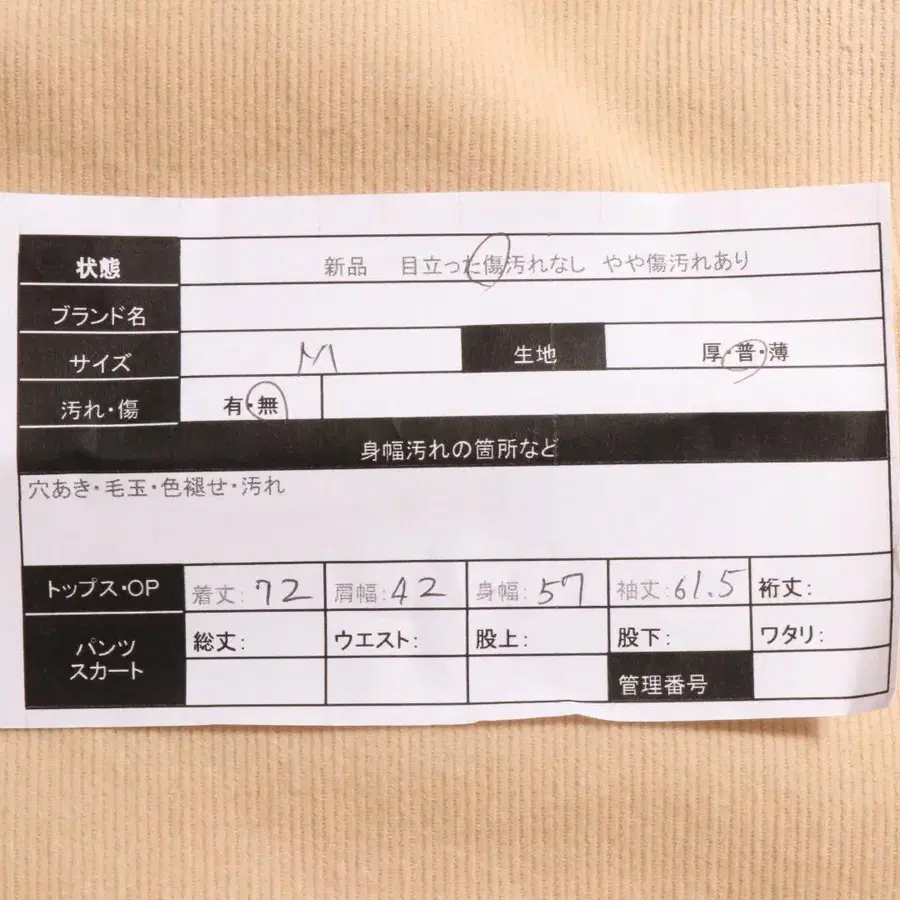 状態 新品 目立った傷汚れなし やや傷汚れあり
ブランド名
サイズ M 生地 厚・普・薄
汚れ・傷 有・無
身幅汚れの箇所など
穴あき・毛玉・色褪せ・汚れ
トップス・OP 着丈:72 肩幅:42 身幅:57 袖丈:61.5 裄丈:
パンツ スカート 総丈: ウエスト: 股上: 股下: ワタリ:
管理番号